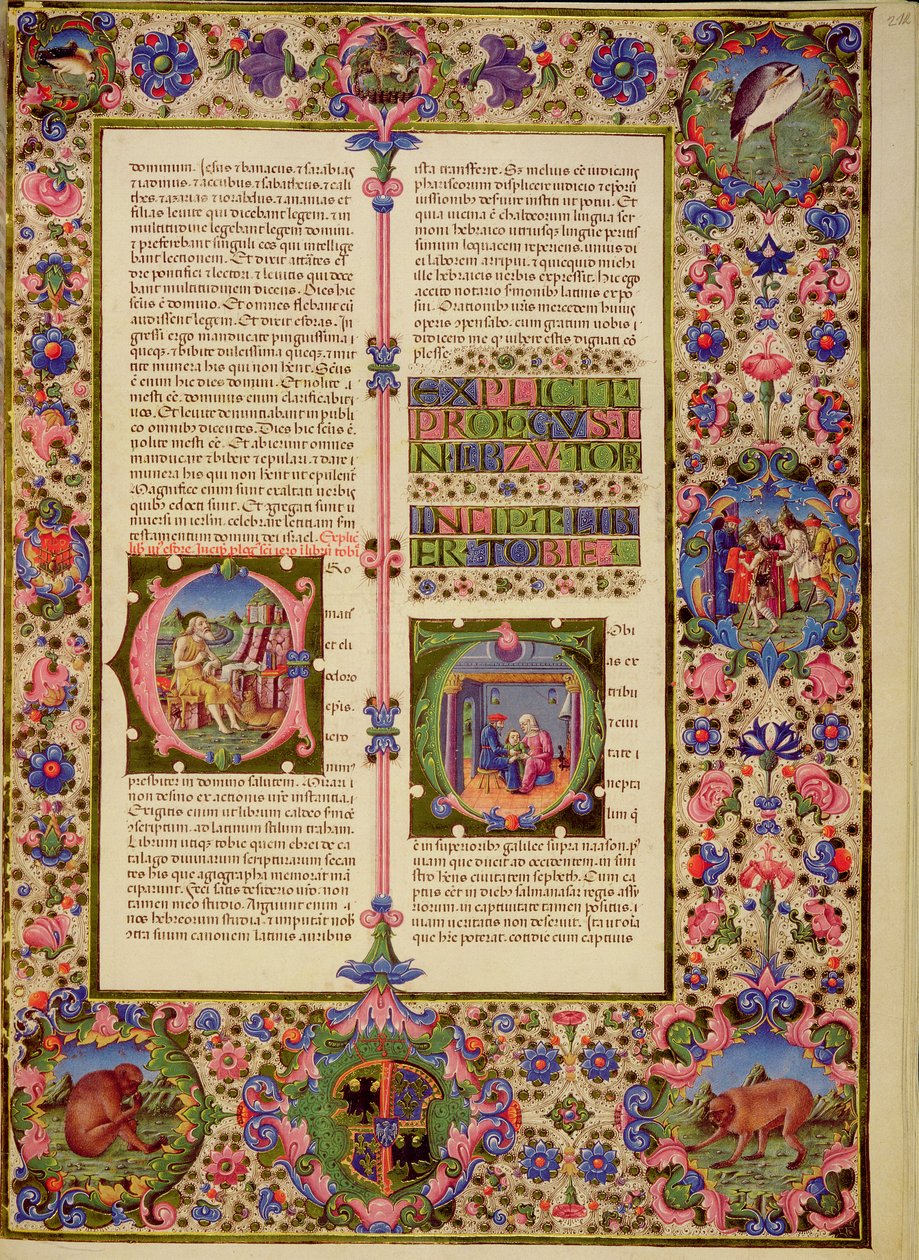 dominum. Jesus ⁊ banaeus ⁊ sarabias
⁊ iadinus. ⁊ accubus. ⁊ sabatheus. ⁊ cali
thes. ⁊ azarias ⁊ iorabdus. ⁊ ananias et
filias leuite qui dicebant legem. ⁊ in
multitudine legebant legem domini.
⁊ preferebant singuli eos qui intellige
bant lectionem. Et dixit
dre pontifici ⁊ lectori. ⁊ leuitis qui doce
bant multitudinem dicens. Dies hic
scūs ē domino. Et omnes flebant cū
audissent legem. Et dixit esdras. In
gressi ergo manducate pinguissima
queqz. ⁊ bibite dulcissima queqz. ⁊ mit
tite munera his qui non hēnt. Scūs
ē enim hic dies domini. Et nolite
mesti cē. dominus enim clarificabit
uos. Et leuite denuntiabant in publi
co omnibꝰ dicentes. Dies hic scūs ē.
nolite mesti cē. Et abierunt omnes
manducare ⁊ bibere ⁊ epulari. ⁊ dare
munera his qui non hēnt ut epulent̄.
Magnifice enim sunt exaltati uerbis
quibꝰ edocti sunt. Et gregati sunt u
niuersi in ierlm̄. celebrare letitiam scdm̄
testamentum domini dei israel. Explic̄
lib. iijꝰ esdre. Incip. plogꝰ sc̄i iero. ī librū tobīe
Ro
matī
et eli
odoro
ep̄is.
iero
nimꝰ
presbiter in domino salutem. Mirari
non desino exactionis ur̄e instantia.
Exigitis enim ut librum caldeo sm̄ōe
ɔscriptum. ad latinum stilum traham.
Librum utiqz tobie quem ebrei de ca
talago diuinarum scripturarum secan
tes his que agiographa memorāt mā
ciparunt. Feci satis desiderio ur̄o. non
tamen meo studio. Arguunt enim
nos hebreorum studia. ⁊ imputāt nobꝭ
ɔtra suum canonem latinis auribus
ista transferre. Sz melius cē iudicans
phariseorum displicere iudicio ⁊ ep̄orū
iussionibꝰ deseruire institi ut potui. Et
quia uicina ē chaldeorum lingua ser
moni hebraico utriusqz lingue peritis
simum loquacem reperiens. unius di
ei laborem arripui. ⁊ quicquid mich
ille hebraicis uerbis expressit. hic ego
accito notario sm̄onibꝭ latinis expo
sui. Orationibꝰ ur̄is mercedem huius
operis ɔpensabo. cum gratum uobis
didicero me qꝰ iubere estis dignati cō
plesse.
EXPLICIT
PROLOGVS I
N LIBZV TOB
INCIPIT LIB
ER TOBIE
Tobi
as ex
tribu
⁊ ciui
tate
nepta
lim q̄
ē in superioribꝰ galilee supra naason. pꝰ
uiam que ducit ad occidentem. in sini
stro hēns ciuitatem sepheth. Cum ca
ptus eēt in diebꝰ salmanasar regis assy
riorum. in captiuitate tamen positus.
uiam ueritatis non deseruit. Ita ut oīa
que hr̄e poterat. cotidie cum captiuis